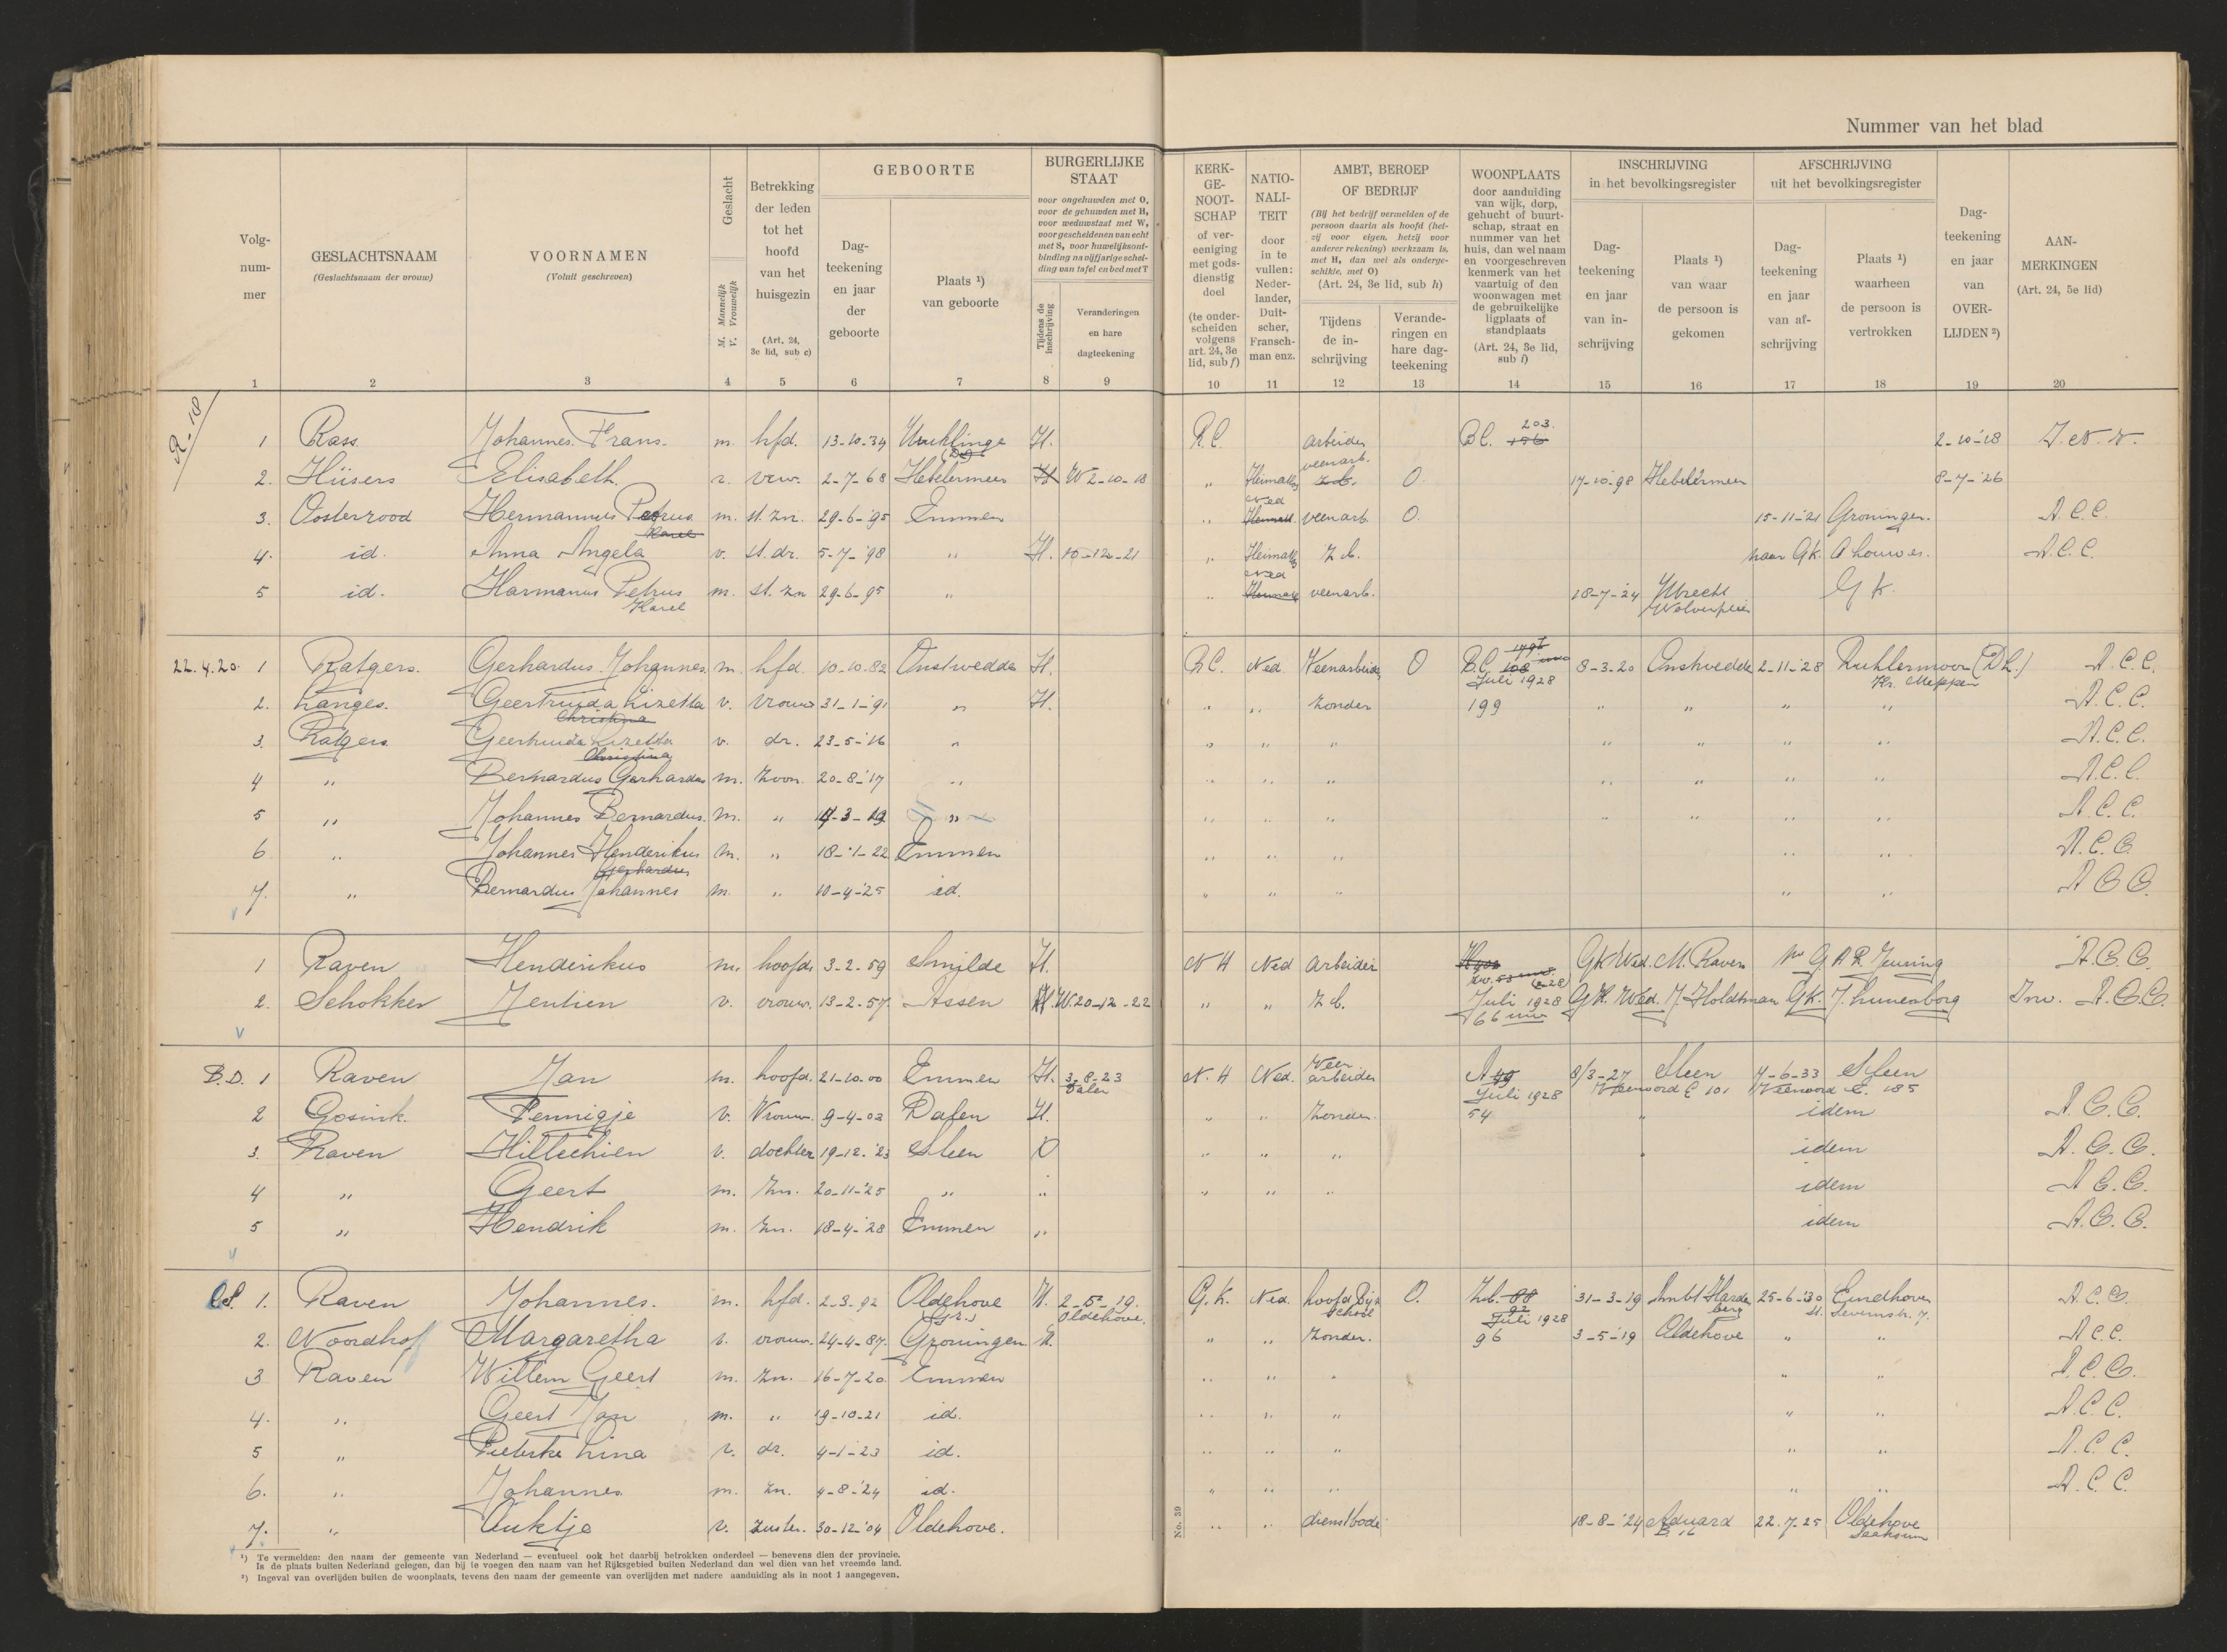 Nummer van het blad
Volg-
num-
mer
GESLACHTSNAAM
(Geslachtsnaam der vrouw)
VOORNAMEN
(Voluit geschreven)
Geslacht
M. Mannelijk
V. Vrouwelijk
Betrekking
der leden
tot het
hoofd
van het
huisgezin
(Art. 24,
3e lid, sub c)
GEBOORTE
Dag-
teekening
en jaar
der
geboorte
Plaats ¹)
van geboorte
BURGERLIJKE
STAAT
voor ongehuwden met O,
voor de gehuwden met H,
voor weduwstaat met W,
voor gescheidenen van echt
met S, voor huwelijksont-
binding na vijfjarige schei-
ding van tafel en bed met T
Tijdens de
inschrijving
Veranderingen
en hare
dagteekening
KERK-
GE-
NOOT-
SCHAP
of ver-
eeniging
met gods-
dienstig
doel
(te onder-
scheiden
volgens
art. 24, 3e
lid, sub f)
NATIO-
NALI-
TEIT
door
in te
vullen:
Neder-
lander,
Duit-
scher,
Fransch-
man enz.
AMBT, BEROEP
OF BEDRIJF
(Bij het bedrijf vermelden of de
persoon daarin als hoofd (het-
zij voor eigen, hetzij voor
anderer rekening) werkzaam is,
met H, dan wel als onderge-
schikte, met O)
(Art. 24, 3e lid, sub h)
Tijdens
de in-
schrijving
Verande-
ringen en
hare dag-
teekening
WOONPLAATS
door aanduiding
van wijk, dorp,
gehucht of buurt-
schap, straat en
nummer van het
huis, dan wel naam
en voorgeschreven
kenmerk van het
vaartuig of den
woonwagen met
de gebruikelijke
ligplaats of
standplaats
(Art. 24, 3e lid,
sub i)
INSCHRIJVING
in het bevolkingsregister
Dag-
teekening
en jaar
van in-
schrijving
Plaats ¹)
van waar
de persoon is
gekomen
AFSCHRIJVING
uit het bevolkingsregister
Dag-
teekening
en jaar
van af-
schrijving
Plaats ¹)
waarheen
de persoon is
vertrokken
Dag-
teekening
en jaar
van
OVER-
LIJDEN ²)
AAN-
MERKINGEN
(Art. 24, 5e lid)
1 2 3 4 5 6 7 8 9 10 11 12 13 14 15 16 17 18 19 20
R-18
1 Rass. Johannes Frans. m. hfd. 13-10-34 H. R.C. arbeider B.C. 156 203. 2-10-'18
2. Hüsers Elisabeth. v. vrw. 2-7-68 Hebelermeer H W 2-10-18 " veenarb. z.b. O 17-10-98 Hebelermeer 8-7-'26
3. Oosterrood Hermannus Petrus Karel m. st. zn. 29-6-'95 Emmen " Ned veenarb. O. 15-11-'21 Groningen. A.C.C.
4. id. Anna Angela v. st. dr. 5-7-'98 " H. 10-12-21 " z.b. naar GK. A.C.C.
5 id. Harmanus Petrus Karel m. st. zn 29-6-95 " " Ned veenarb. 18-7-24 Utrecht G K.
22.4.20. 1 Ratgers. Gerhardus Johannes. m. hfd. 10-10-82 Onstwedde H. R.C. Ned. Veenarbeider O B.C. 108 Juli 1928 8-3-20 Onstwedde 2-11-'28 Ruhlermoor (Dl.) Kr. Meppen A.C.C.
2. Langes. Geertruida Lizetta Christina v. vrouw 31-1-91 " H. " " zonder 199 " " " " A.C.C.
3. Ratgers Geertruida Lizetta Christina v. dr. 23-5-'16 " " " " " " " " A.C.C.
4 " Bernardus Gerhardus m. zoon. 20-8-'17 " " " " " " " " A.C.C.
5 " Johannes Bernardus. m. " 4-3-19 " " " " " " " " A.C.C.
6 " Johannes Henderikus Gerhardus m. " 18-1-22 Emmen " " " " " A.C.C.
7. " Bernardus Johannes m. " 10-4-25 id. " " " " " A.C.C.
1 Raven Henderikus m. hoofd. 3-2-59 Smilde H. N H Ned Arbeider GK Wed. M. Raven A.C.C.
2. Schokker Jentien v. vrouw. 13-2-57. Assen H. W. 20-12-22 " " z.b. Juli 1928 66 GK. Wed. J. Holdtman GK. J. Lunenborg Inw. A.C.C.
B.D. 1 Raven Jan m. hoofd. 21-10-00 Emmen H. 3-8-23 Dalen N.H Ned. Veenarbeider A 49 Juli 1928 8/3-27 Sleen Veenoord E 101 7-6-33 Sleen Veenoord E. 185
2 Gosink. Fennigje v. Vrouw. 9-4-02 Dalen H. " " zonder. 54 " idem A.C.C.
3. Raven Hillechien v. dochter 19-12-'23 Sleen O " " " " idem A.C.C.
4 " Geert m. zn. 20-11-'25 " " " " " idem A.C.C.
5 " Hendrik m. zn. 18-4-'28 Emmen " idem A.C.C.
1. Raven Johannes. m. hfd. 2-3-92 Oldehove (Gr.) H. 2-5-19. Oldehove. G.K. Ned. hoofd Bijz School O. 88 92 Juli 1928 31-3-19 Ambt Hardenberg 25-6-'30 Eindhoven A.C.C.
2. Noordhof Margaretha v. vrouw. 24-4-87. Groningen H. " " zonder. 96 3-5-'19 Oldehove " " A.C.C.
3 Raven Willem Geert m. zn. 16-7-20 Emmen " " " " " A.C.C.
4. " Geert Jan m. " 19-10-21 id. " " " " " A.C.C.
5 " Pieterke Lina v. dr. 4-1-23 id. " " " " " A.C.C.
6. " Johannes m. zn. 4-8-'24 id. " " " " " A.C.C.
7. " Auktje v. zuster. 30-12-'04 Oldehove. " " dienstbode 18-8-'24 Aduard B. 16 22-7-25 Oldehove Saaksum
No. 39
¹) Te vermelden: den naam der gemeente van Nederland — eventueel ook het daarbij betrokken onderdeel — benevens dien der provincie.
Is de plaats buiten Nederland gelegen, dan bij te voegen den naam van het Rijksgebied buiten Nederland dan wel dien van het vreemde land.
²) Ingeval van overlijden buiten de woonplaats, tevens den naam der gemeente van overlijden met nadere aanduiding als in noot 1 aangegeven.